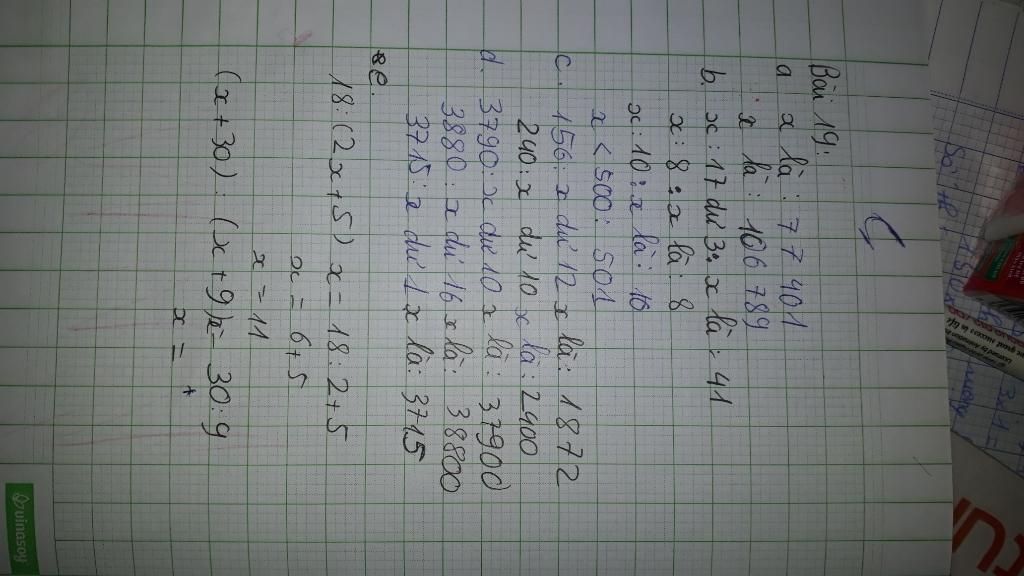 Bài 19:
a x là: 77 401
x là: 106 789
b. x : 17 dư 3: x là : 41
x : 8 : x là : 8
x : 10 : x là : 10
x < 500 : 501
c. 156 : x dư 12 x là: 1872
240 : x dư 10 x là : 2400
d. 3790 : x dư 10 x là : 37900
3880 : x dư 16 x là: 38800
3715 : x dư 1 x là: 3715
e.
18 : (2x+5) x = 18 : 2+5
x = 6+5
x = 11
(x+30) : (x+9) = 30 : 9
x =
Vinasoy